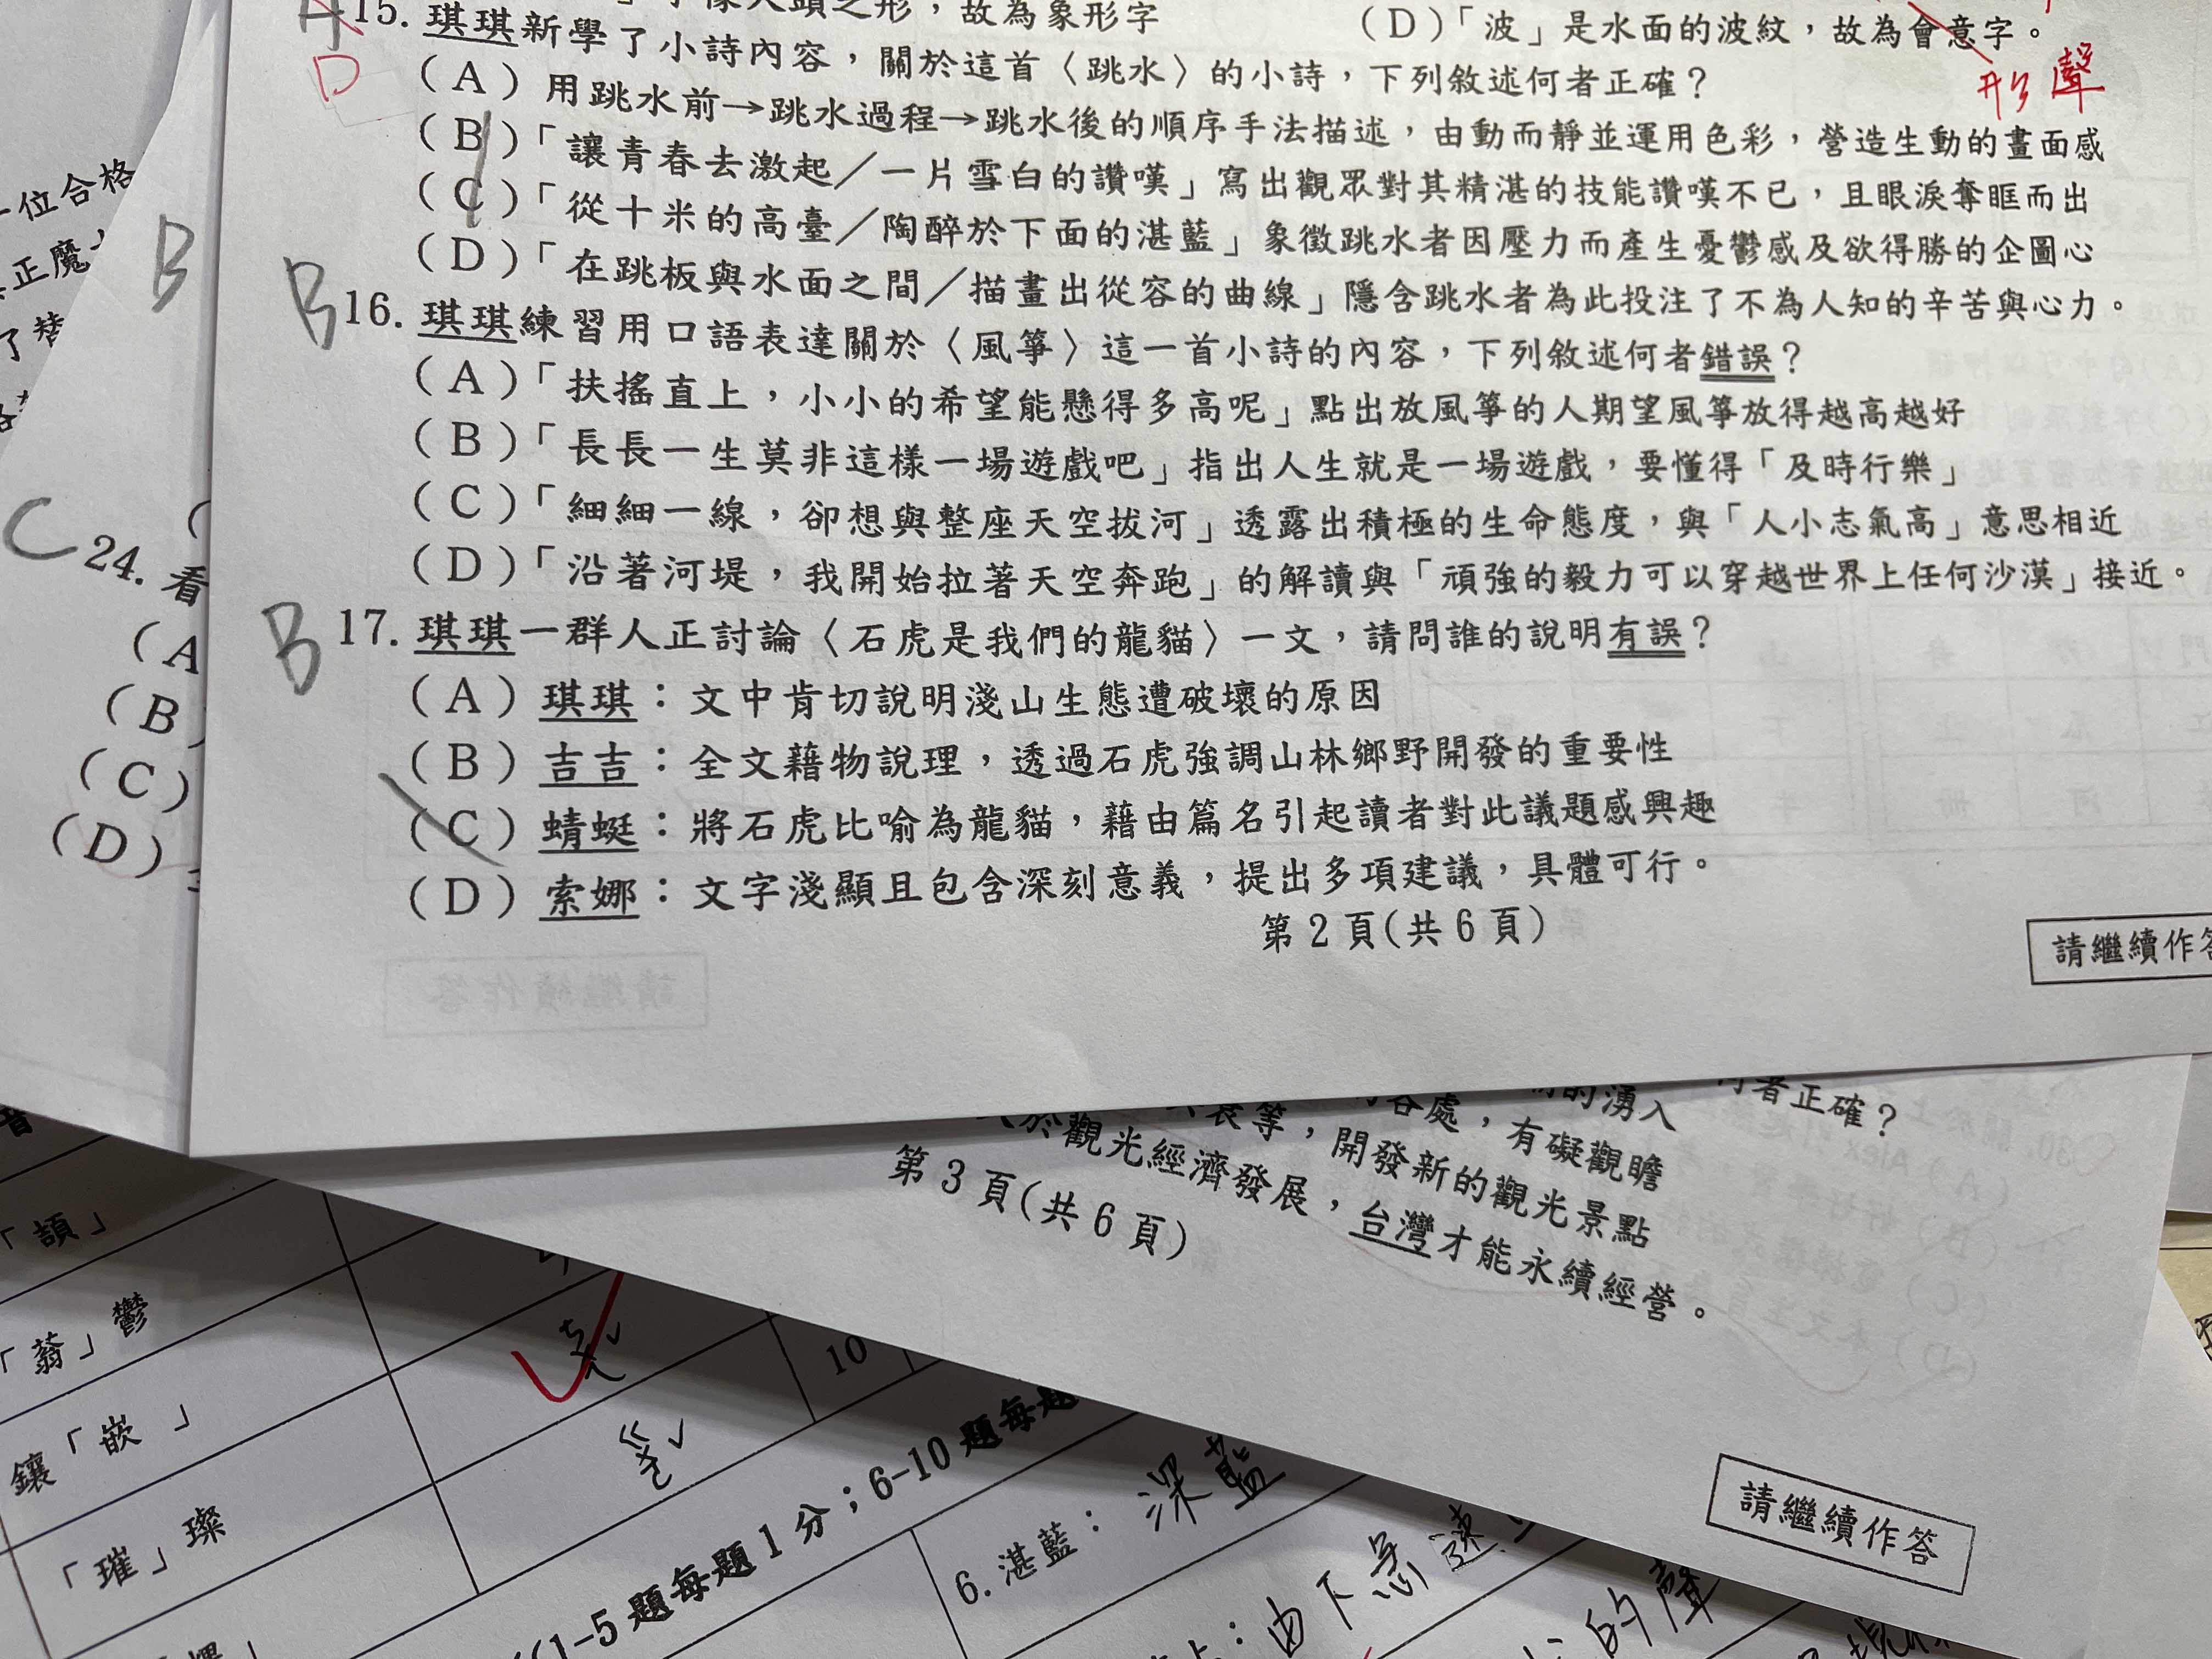 故為象形字
(D)「波」是水面的波紋，故為會意字。
形聲
A
D
15. 琪琪新學了小詩內容，關於這首〈跳水〉的小詩，下列敘述何者正確？
(A) 用跳水前→跳水過程→跳水後的順序手法描述，由動而靜並運用色彩，營造生動的畫面感
(B)「讓青春去激起／一片雪白的讚嘆」寫出觀眾對其精湛的技能讚嘆不已，且眼淚奪眶而出
(C)「從十米的高臺／陶醉於下面的湛藍」象徵跳水者因壓力而產生憂鬱感及欲得勝的企圖心
(D)「在跳板與水面之間／描畫出從容的曲線」隱含跳水者為此投注了不為人知的辛苦與心力。
B
16. 琪琪練習用口語表達關於〈風箏〉這一首小詩的內容，下列敘述何者錯誤？
(A)「扶搖直上，小小的希望能懸得多高呢」點出放風箏的人期望風箏放得越高越好
(B)「長長一生莫非這樣一場遊戲吧」指出人生就是一場遊戲，要懂得「及時行樂」
(C)「細細一線，卻想與整座天空拔河」透露出積極的生命態度，與「人小志氣高」意思相近
(D)「沿著河堤，我開始拉著天空奔跑」的解讀與「頑強的毅力可以穿越世界上任何沙漠」接近。
B
17. 琪琪一群人正討論〈石虎是我們的龍貓〉一文，請問誰的說明有誤？
(A) 琪琪：文中肯切說明淺山生態遭破壞的原因
(B) 吉吉：全文藉物說理，透過石虎強調山林鄉野開發的重要性
(C) 蜻蜓：將石虎比喻為龍貓，藉由篇名引起讀者對此議題感興趣
(D) 索娜：文字淺顯且包含深刻意義，提出多項建議，具體可行。
第 2 頁(共 6 頁)
請繼續作答
一位合格
正魔
了
B
C
24. 看
(A
(B
(C)
(D)
何者正確？
的湧入
處，有礙觀瞻
等，開發新的觀光景點
於觀光經濟發展，台灣才能永續經營。
第 3 頁(共 6 頁)
請繼續作答
「頡」
「蓊」鬱
鑲「嵌 」
「璀」璨
ㄍㄜˊ
10
(1-5 題每題 1 分；6-10 題每題
6. 湛藍：深藍
：由下急速
的聲